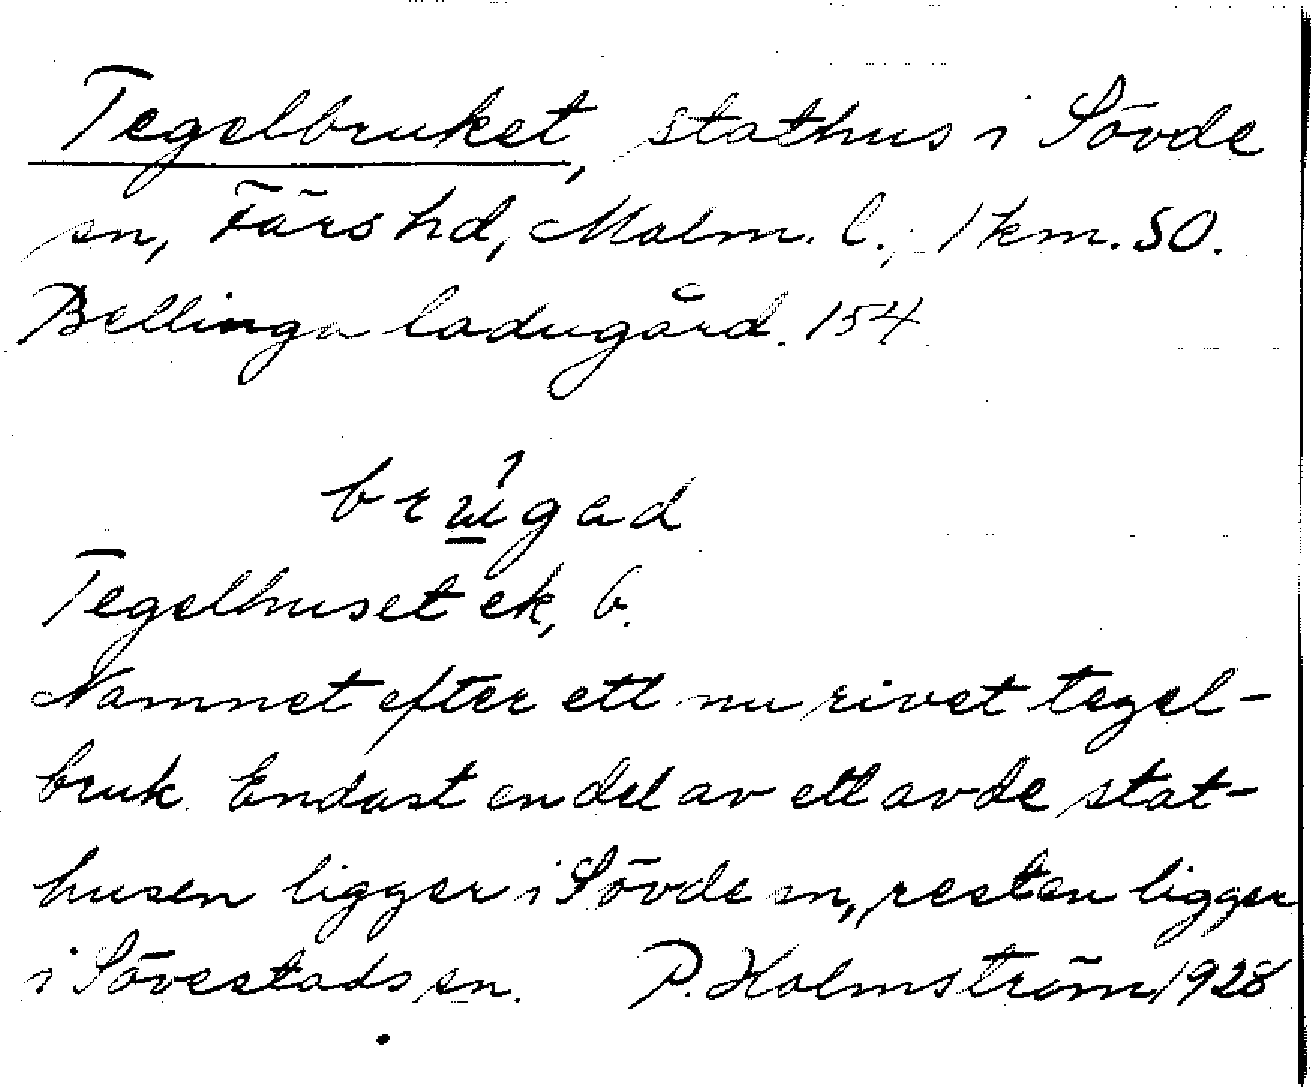 Tegelbruket, stathus i Sövde
sn, Färs hd, Malm. l., 1 km. SO.
Bellinga ladugård. 154
Tegelhuset ek, 6.
Namnet efter ett nu rivet tegel-
bruk. Endast en del av ett av de stat-
husen ligger i Sövde sn, resten ligger
i Sövestads sn. P. Holmström 1928